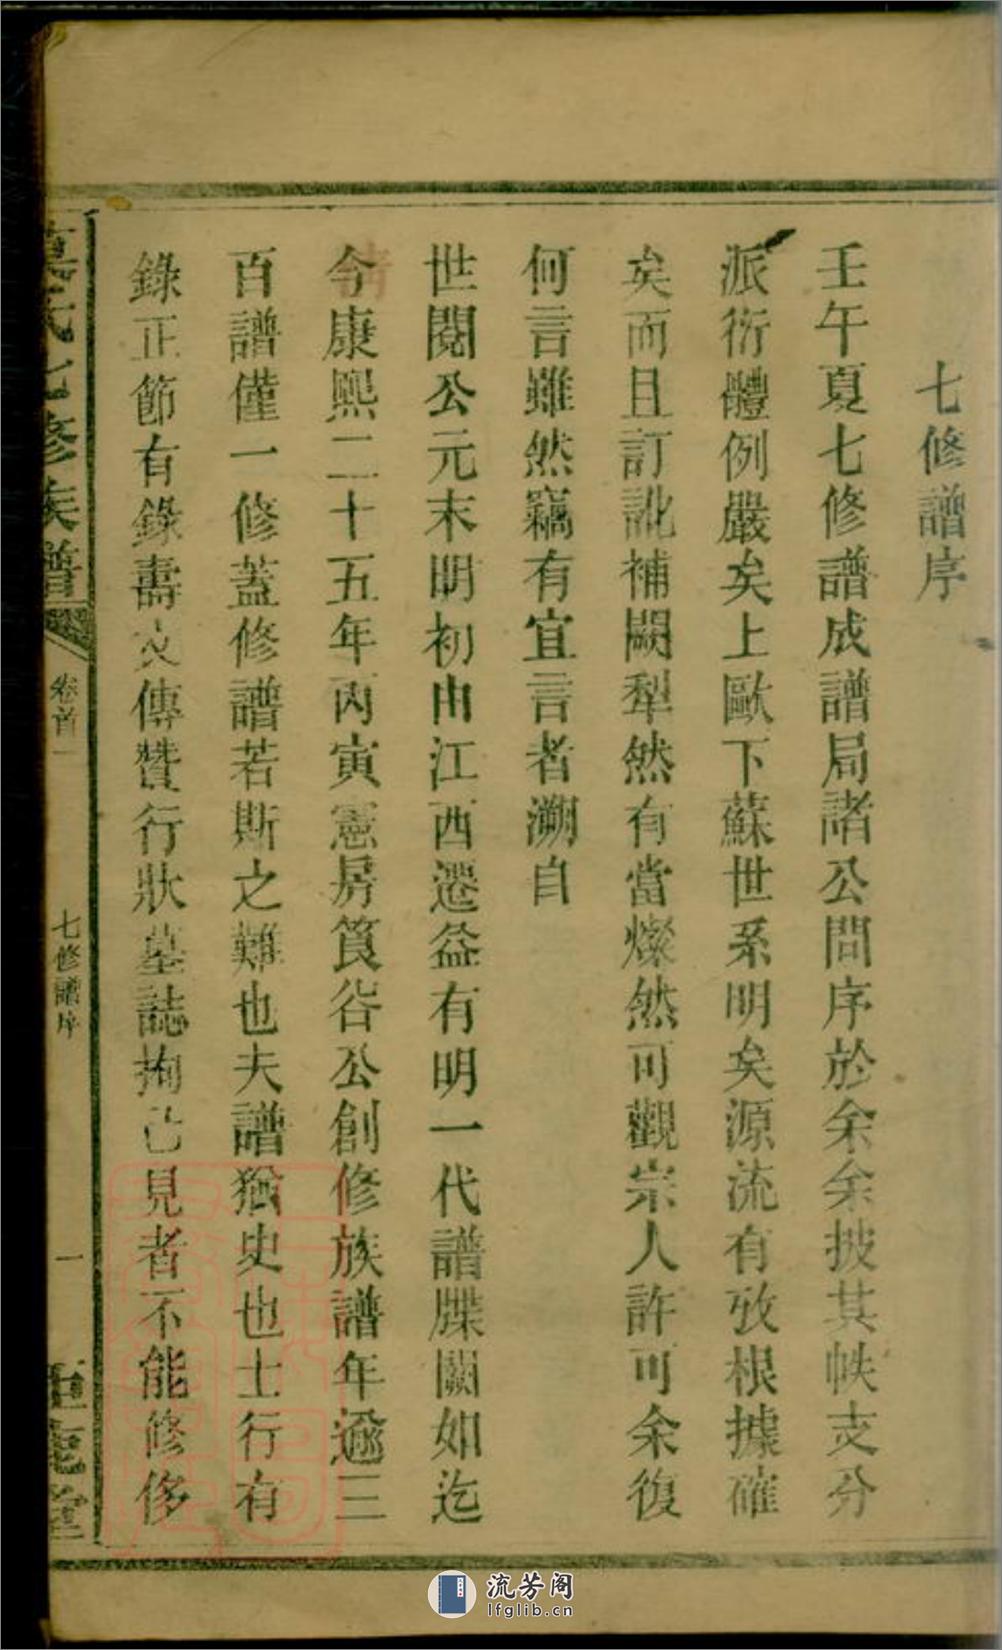 七修譜序
壬午夏七修譜成譜局諸公問序於余余披其帙支分
派衍體例嚴矣上歐下蘇世系明矣源流有攷根據確
矣而且訂訛補闕犁然有當燦然可觀宗人許可余復
何言雖然竊有宜言者溯自
世閱公元末明初由江西遷益有明一代譜牒闕如迄
今康熙二十五年丙寅憲房筤谷公創修族譜年逾三
百譜僅一修蓋修譜若斯之難也夫譜猶史也士行有
錄正節有錄壽文傳贊行狀墓誌拘己見者不能修侈
氏七修族譜
卷首一
七修譜序
一
堂
流芳阁
lfglib.cn